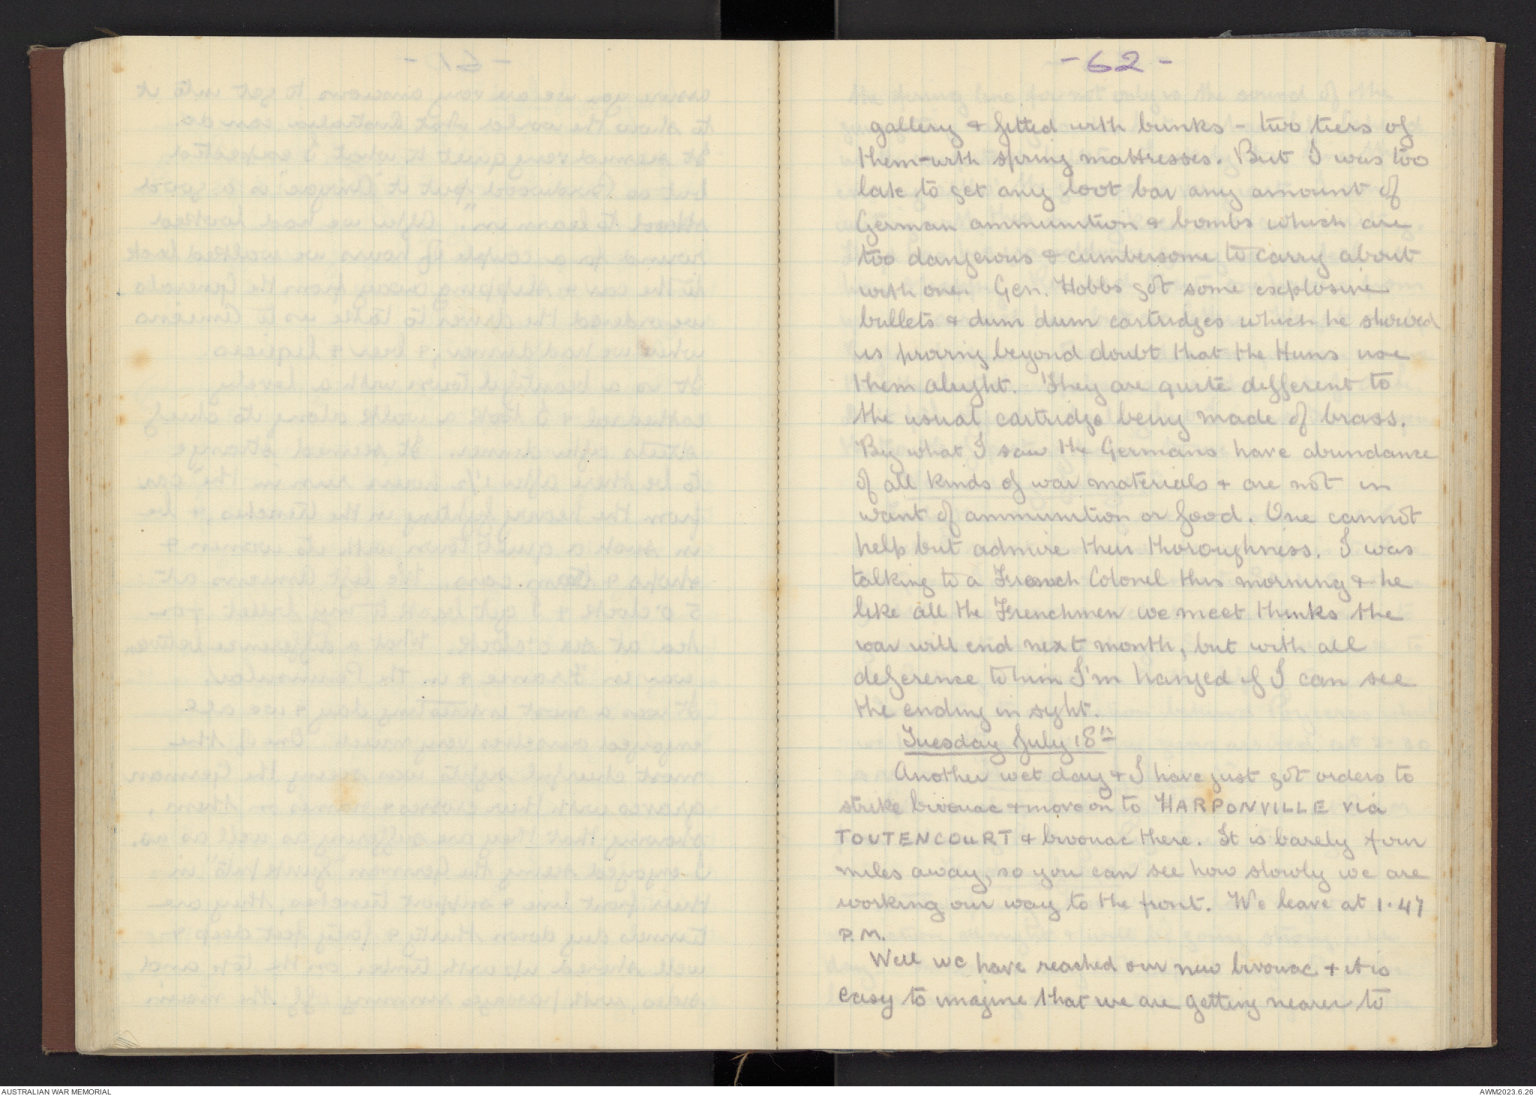 - 62 -
gallery & fitted with bunks - two tiers of
them - with spring mattresses. But I was too
late to get any loot bar any amount of
German ammunition & bombs which are
too dangerous & cumbersome to carry about
with one. Gen. Hobbs got some explosive
bullets & dum dum cartridges which he showed
us proving beyond doubt that the Huns use
them alright. They are quite different to
the usual cartridge being made of brass.
By what I saw the Germans have abundance
of all kinds of war materials & are not in
want of ammunition or food. One cannot
help but admire their thoroughness. I was
talking to a French Colonel this morning & he
like all the Frenchmen we meet thinks the
war will end next month, but with all
deference to him I'm hanged if I can see
the ending in sight.
Tuesday July 18th
Another wet day & I have just got orders to
strike bivouac & move on to HARPONVILLE via
TOUTENCOURT & bivouac there. It is barely four
miles away, so you can see how slowly we are
working our way to the front. We leave at 1.47
P.M.
Well we have reached our new bivouac & it is
easy to imagine that we are getting nearer to
AUSTRALIAN WAR MEMORIAL
AWM2023.6.26